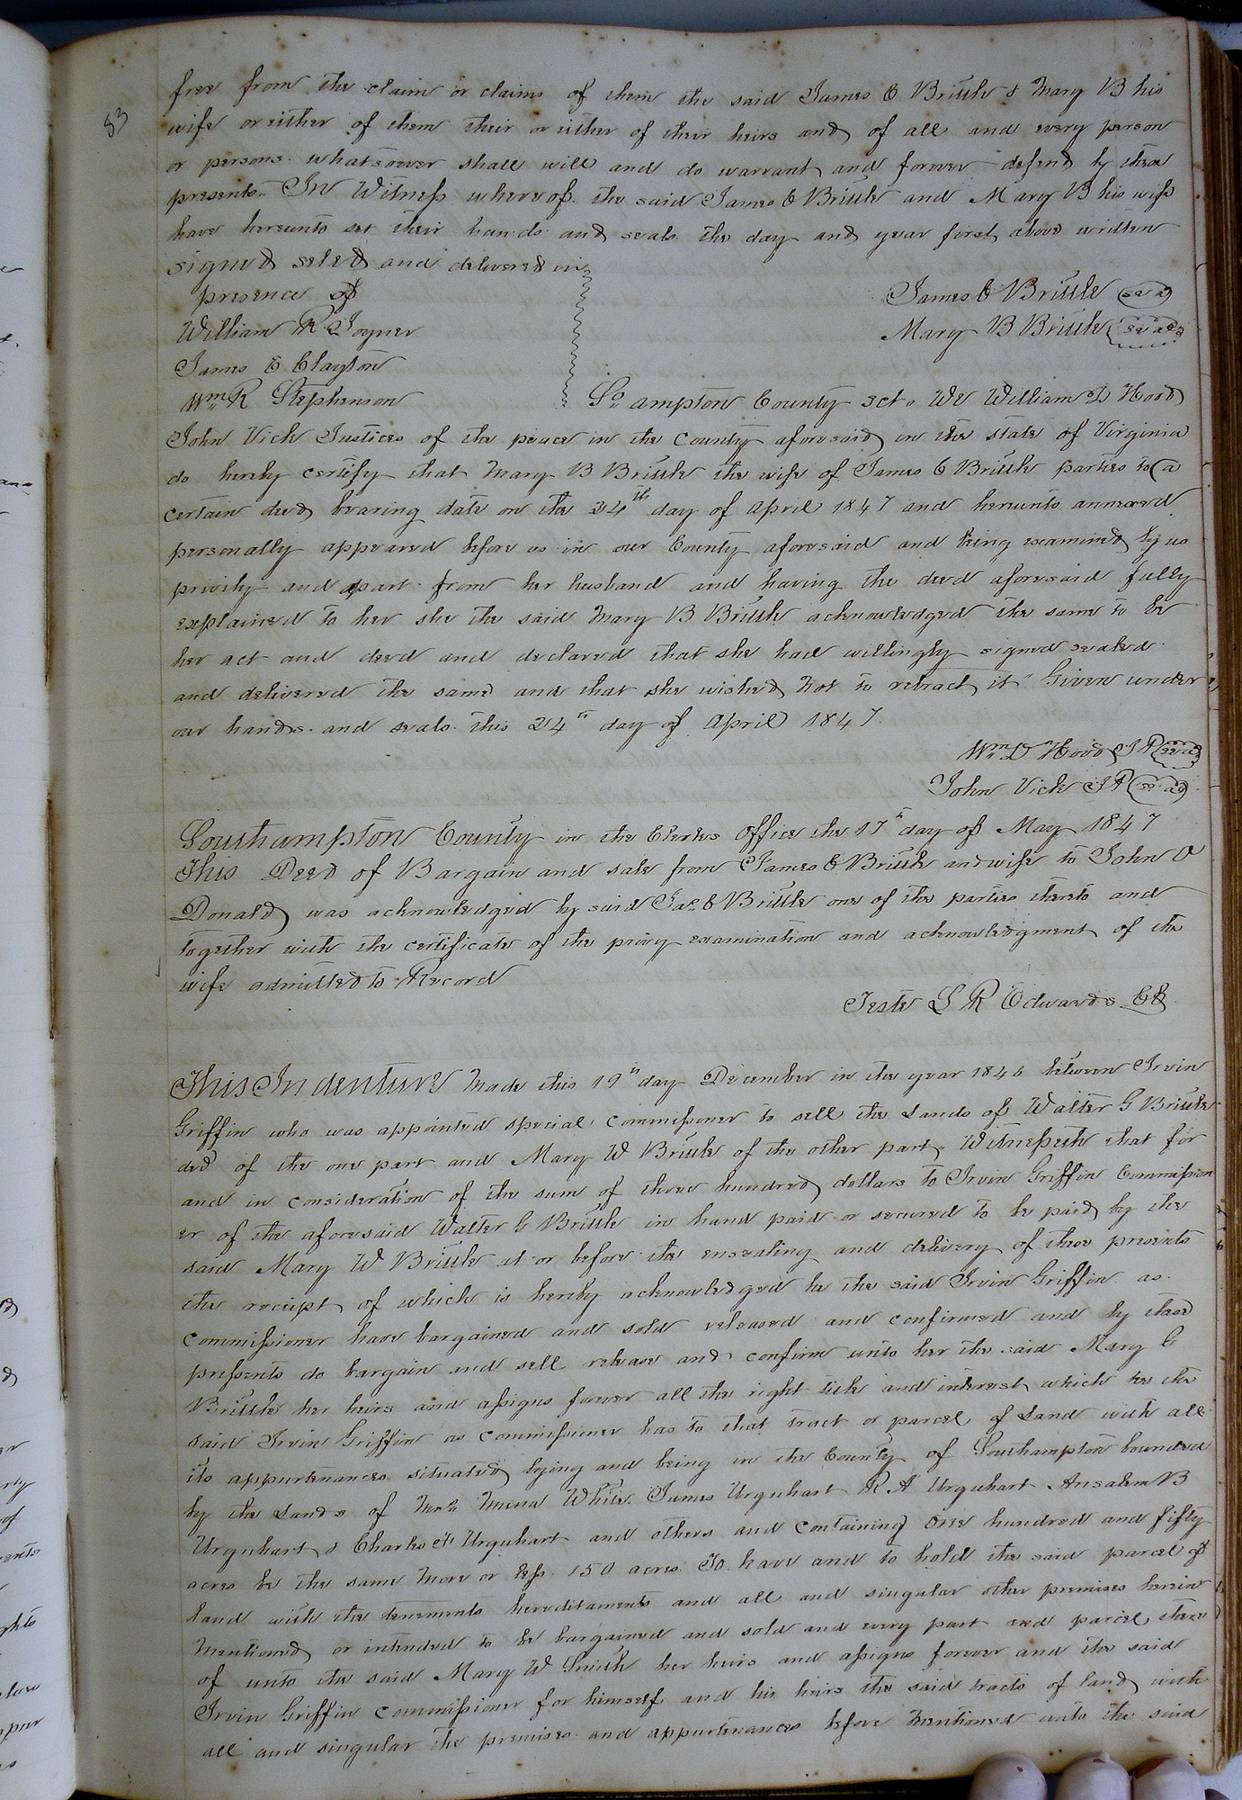 53
free from the claim or claims of them the said James E Brittle & Mary B his
wife or either of them their or either of their heirs and of all and every person
or persons whatsoever shall will and do warrant and forever defend by these
presents. In Witness whereof the said James E Brittle and Mary B his wife
have hereunto set their hands and seals the day and year first above written
signed seled and delivered in
presence of
James E Brittle (seal)
William R Joyner
Mary B Brittle (seal)
James E Clayton
Wm R Stephenson
So ampton County sct. We William D Hood
John Vick Justices of the peace in the County aforesaid in the state of Virginia
do hereby certify that Mary B Brittle the wife of James E Brittle parties to a
certain deed bearing date on the 24th day of April 1847 and hereunto annexed
personally appeared before us in our County aforesaid and being examined by us
privily and apart from her husband and having the deed aforesaid fully
explained to her she the said Mary B Brittle acknowledged the same to be
her act and deed and declared that she had willingly signed sealed
and delivered the same and that she wished not to retract it Given under
our hands and seals this 24th day of April 1847
Wm D Hood JP (seal)
John Vick JP (seal)
Southampton County in the Clerks Office the 17th day of May 1847
This Deed of Bargain and sale from James E Brittle and wife to John O
Donald was acknowledged by said Jas E Brittle one of the parties thereto and
together with the certificate of the privy examination and acknowledgment of the
wife admitted to Record
Teste L R Edwards Clk
This Indenture Made this 19th day December in the year 1846 between Irvin
Griffin who was appointed special commissioner to sell the Lands of Walter G Brittle
decd of the one part and Mary W Brittle of the other part, Witnesseth that for
and in consideration of the sum of three hundred dollars to Irvin Griffin Commission
er of the aforesaid Walter G Brittle in hand paid or secured to be paid by the
said Mary W Brittle at or before the ensealing and delivery of these presents
the receipt of which is hereby acknowledged he the said Irvin Griffin as
commissioner have bargained and sold released and confirmed and by these
pressents do bargain and sell release and confirm unto her the said Mary G
Brittle her heirs and assigns forever all the right title and interest which he the
said Irvin Griffin as commissioner has to that tract or parcel of Land with all
its appurtenances situated lying and being in the County of Southampton bounded
by the Lands of White James Urquhart R A Urquhart Ansalem B
Urquhart & Charles F Urquhart and others and containing one hundred and fifty
acres be the same more or less 150 acres To have and to hold the said parcel of
Land with the tenements hereditaments and all and singular other premises herein
mentioned or intended to be bargained and sold and every part and parcel there
of unto the said Mary W Smith her heirs and assigns forever and the said
Irvin Griffin commissioner for himself and his heirs the said tracts of land with
all and singular the premises and appurtenances before mentioned unto the said